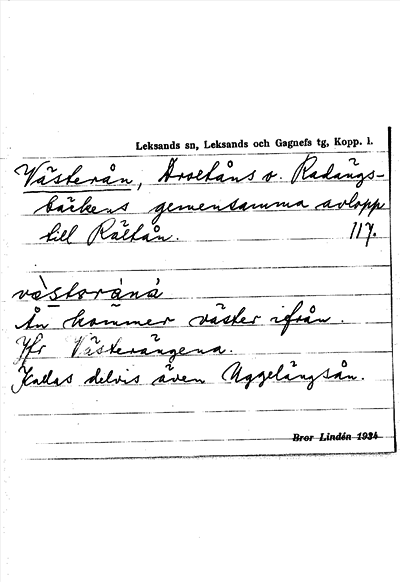 Leksands sn, Leksands och Gagnefs tg, Kopp. l.
Västerån, Droltåns o. Radängs-
bäckens gemensamma avlopp
till Rältån. 117.
væ̀storáná
Ån kommer väster ifrån.
Jfr Västerängena.
Kallas delvis även Uggelängsån.
Bror Lindén 1934